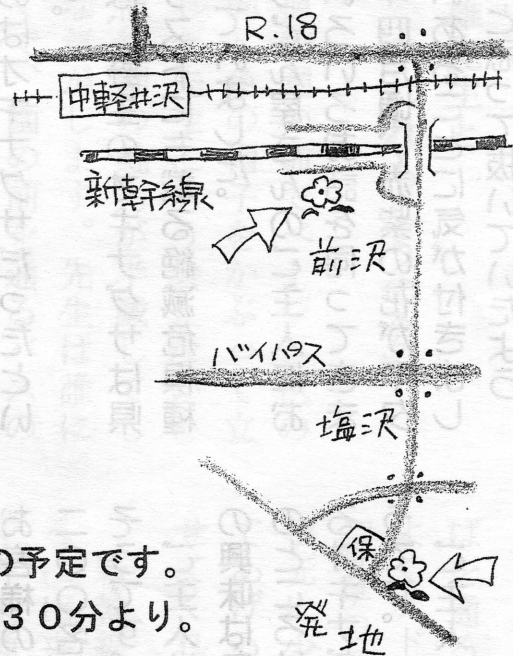 R.18
中軽井沢
新幹線
前沢
バイパス
塩沢
保
発地
の予定です。
30分より。